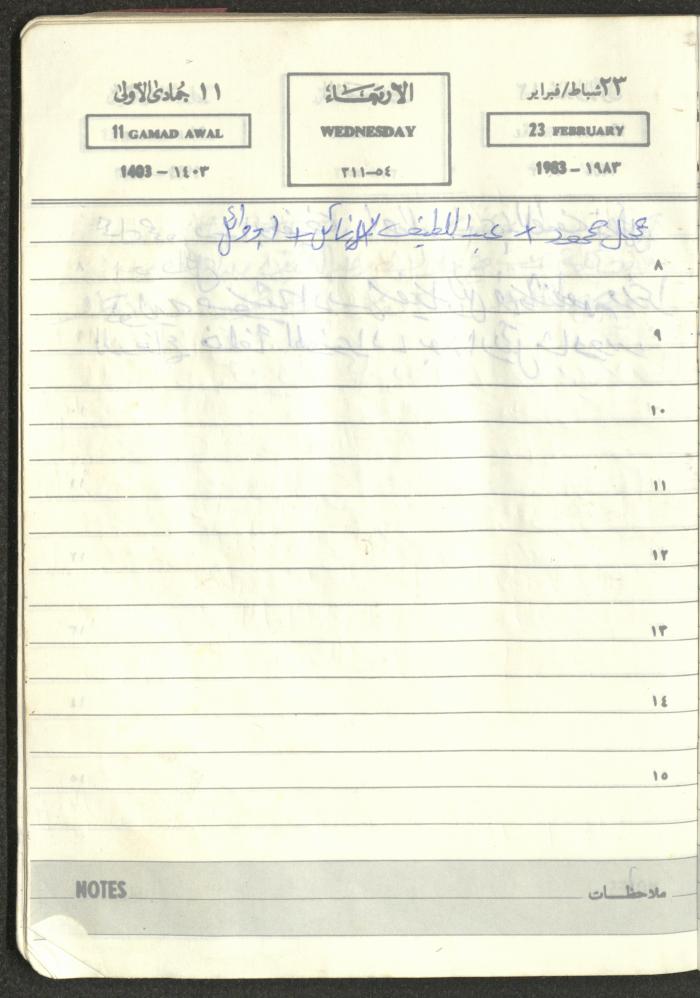 ٢٣ شباط/فبراير
23 FEBRUARY
١٩٨٣ – 1983
الأربعاء
WEDNESDAY
٥٤–٣١١
١١ جمادى الأولى
11 GAMAD AWAL
١٤٠٣ – 1403
محمود + عبد اللطيف +
٨
٩
١٠
١١
١٢
١٣
١٤
١٥
NOTES ملاحظات